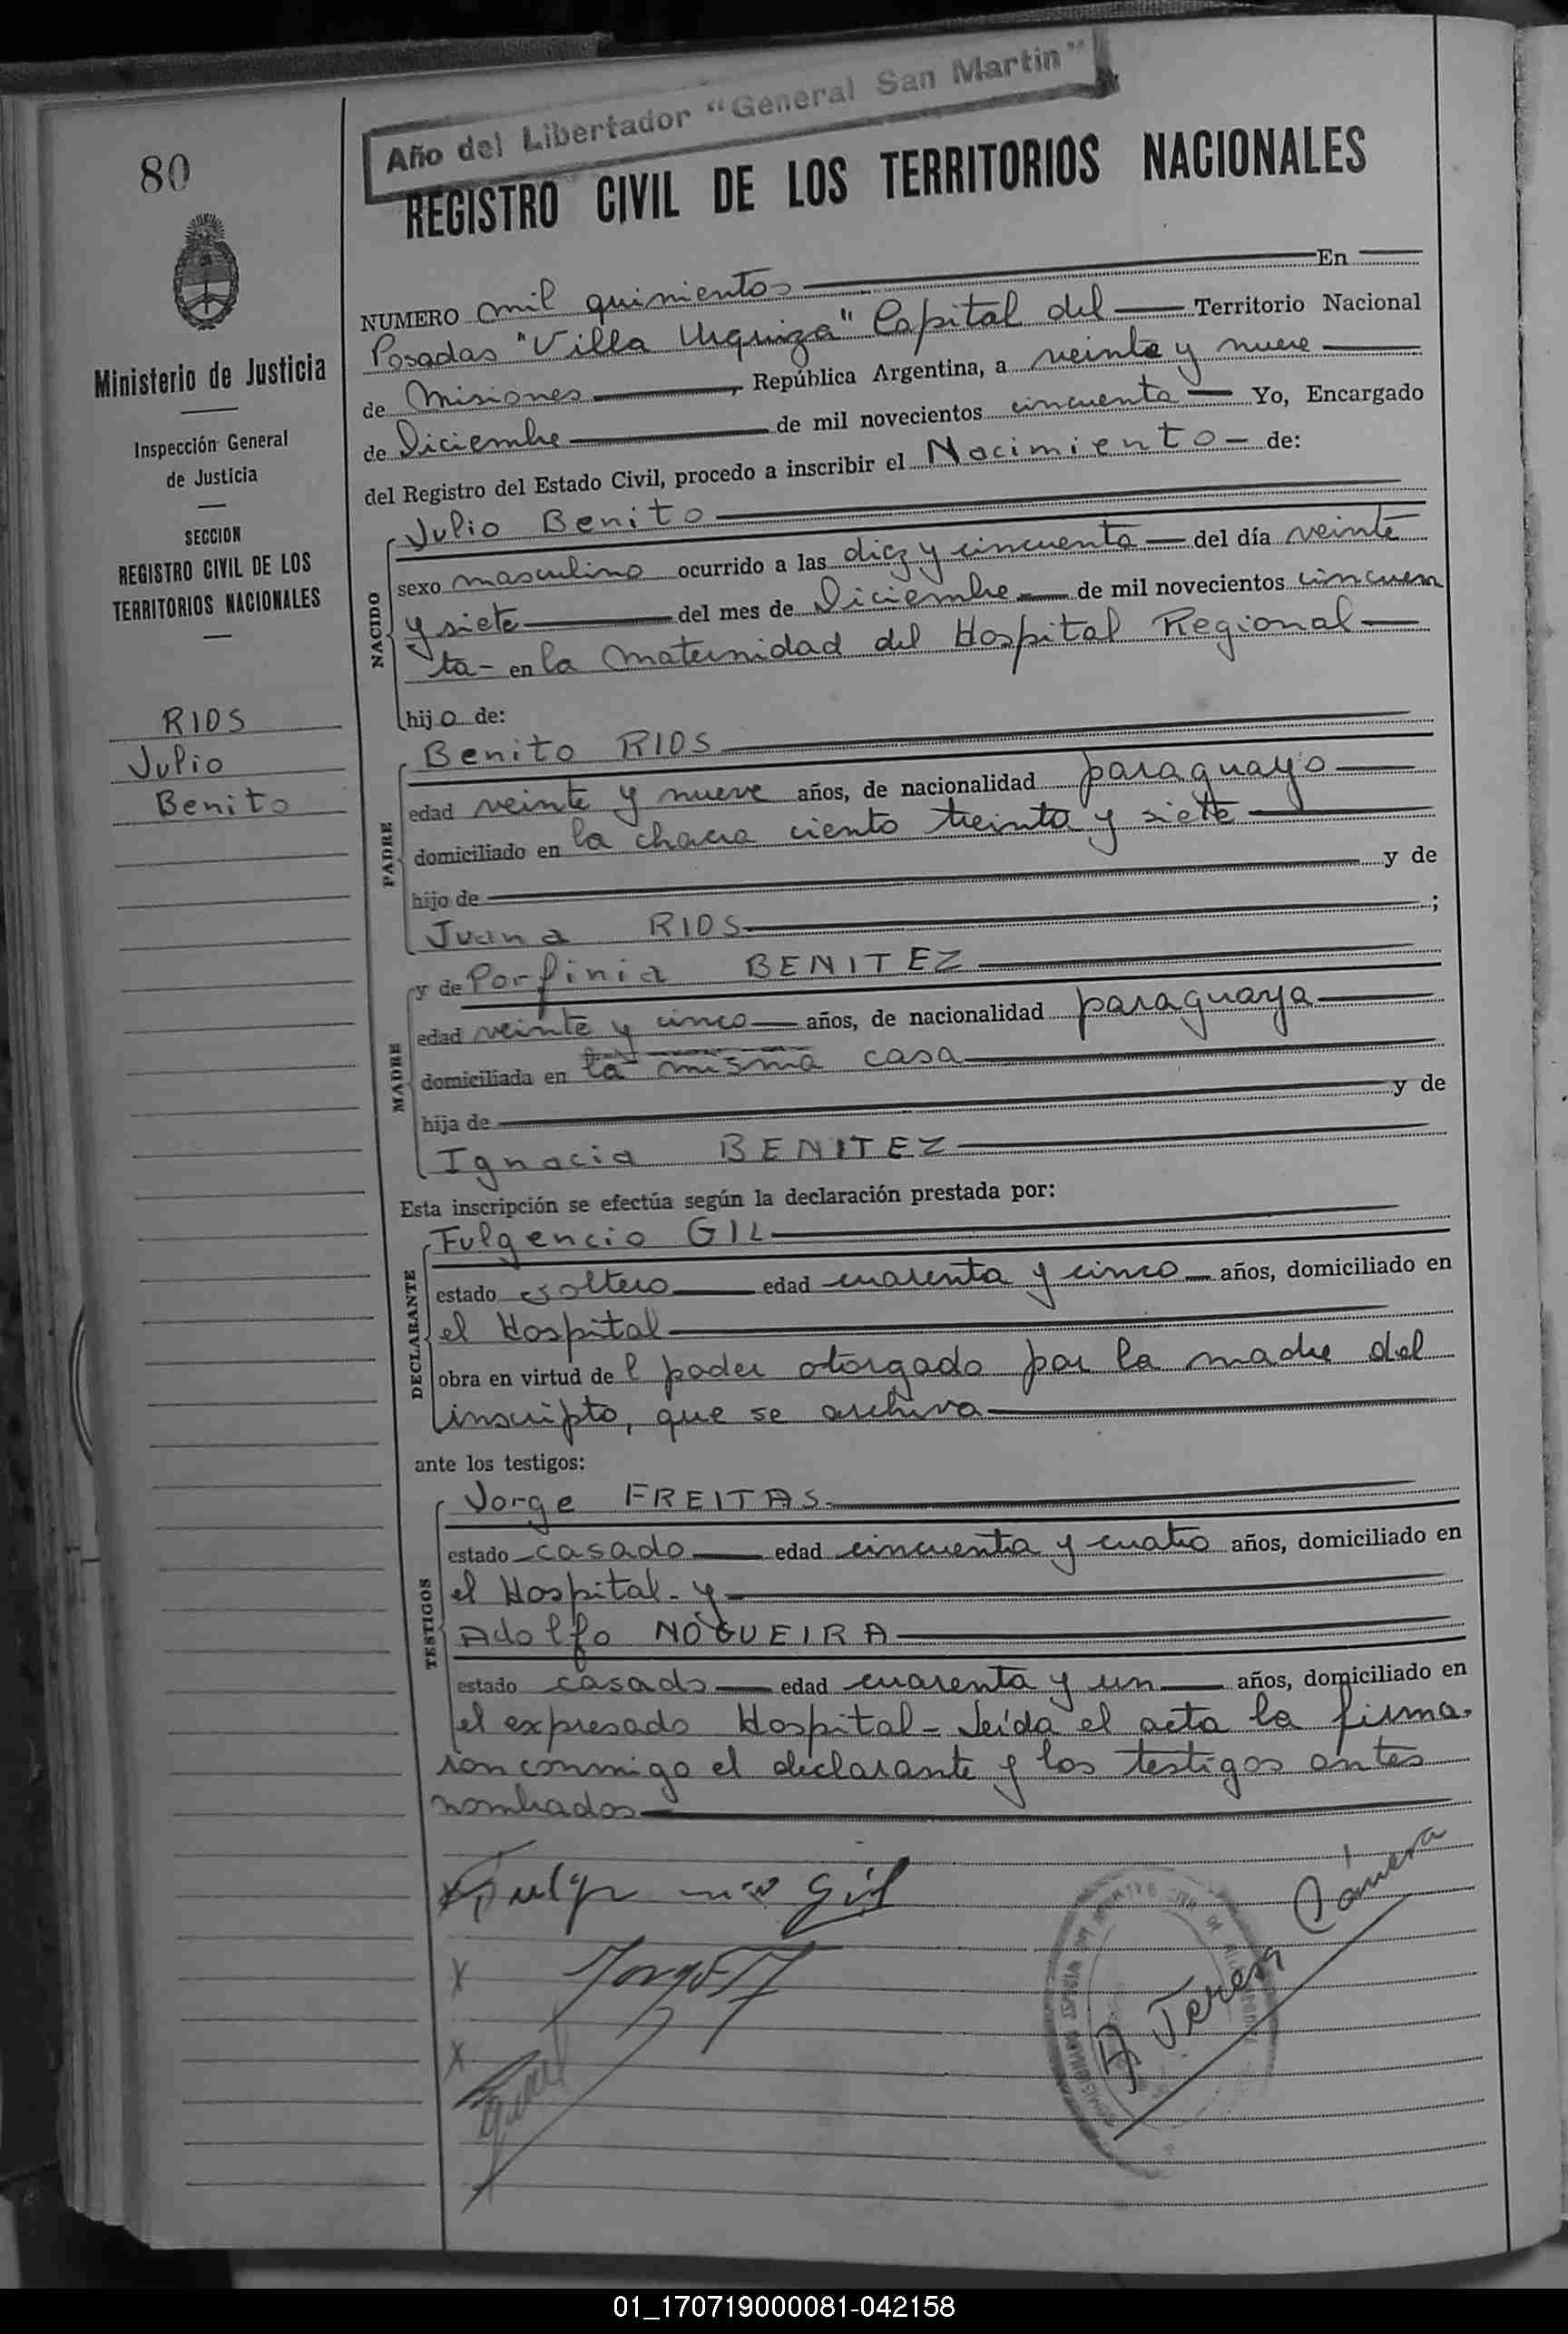 Año del Libertador "General San Martin"
80
REGISTRO CIVIL DE LOS TERRITORIOS NACIONALES
Ministerio de Justicia
Inspección General
de Justicia
SECCION
REGISTRO CIVIL DE LOS
TERRITORIOS NACIONALES
RIOS
Julio
Benito
NUMERO mil quinientos En
Posadas "Villa Urquiza" Capital del Territorio Nacional
de Misiones, República Argentina, a veinte y nueve
de Diciembre de mil novecientos cincuenta Yo, Encargado
del Registro del Estado Civil, procedo a inscribir el Nacimiento de:
NACIDO
Julio Benito
sexo masculino ocurrido a las diez y cincuenta del día veinte
y siete del mes de Diciembre de mil novecientos cincuen
ta - en la Maternidad del Hospital Regional
hijo de:
PADRE
Benito RIOS
edad veinte y nueve años, de nacionalidad paraguayo
domiciliado en la chacra ciento treinta y siete
hijo de y de
Juana RIOS ;
MADRE
y de Porfinia BENITEZ
edad veinte y cinco años, de nacionalidad paraguaya
domiciliada en la misma casa
hija de y de
Ignacia BENITEZ
Esta inscripción se efectúa según la declaración prestada por:
DECLARANTE
Fulgencio GIL
estado soltero edad cuarenta y cinco años, domiciliado en
el Hospital
obra en virtud del poder otorgado por la madre del
inscripto, que se archiva
ante los testigos:
TESTIGOS
Jorge FREITAS.
estado casado edad cincuenta y cuatro años, domiciliado en
el Hospital - y
Adolfo NOGUEIRA
estado casado edad cuarenta y un años, domiciliado en
el expresado Hospital - Leída el acta la firma-
ron conmigo el declarante y los testigos antes
nombrados
x Fulgencio Gil
x Jorge
x
A Teresa Cámera
01_170719000081-042158